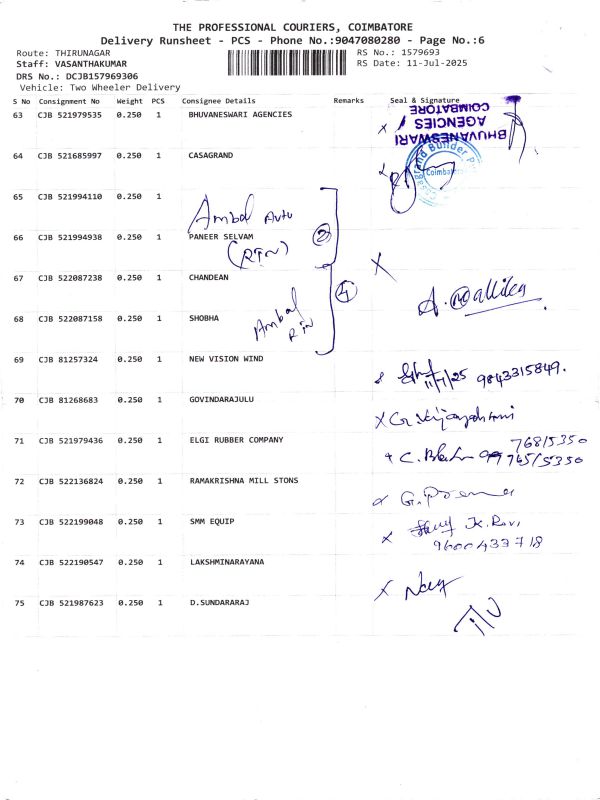 THE PROFESSIONAL COURIERS, COIMBATORE
Delivery Runsheet - PCS - Phone No.:9047080280 - Page No.:6
Route: THIRUNAGAR
RS No.: 1579693
Staff: VASANTHAKUMAR
RS Date: 11-Jul-2025
DRS No.: DCJB157969306
Vehicle: Two Wheeler Delivery
S No Consignment No Weight PCS Consignee Details Remarks Seal & Signature
63 CJB 521979535 0.250 1 BHUVANESWARI AGENCIES
BHUVANESWARI
AGENCIES
COIMBATORE
64 CJB 521685997 0.250 1 CASAGRAND
Coimbatore
65 CJB 521994110 0.250 1
Ambal Auto
66 CJB 521994938 0.250 1 PANEER SELVAM
(RTN)
2
67 CJB 522087238 0.250 1 CHANDEAN
4
68 CJB 522087158 0.250 1 SHOBHA
Ambal
69 CJB 81257324 0.250 1 NEW VISION WIND
11/7/25 9843315849.
70 CJB 81268683 0.250 1 GOVINDARAJULU
71 CJB 521979436 0.250 1 ELGI RUBBER COMPANY
72 CJB 522136824 0.250 1 RAMAKRISHNA MILL STONS
73 CJB 522199048 0.250 1 SMM EQUIP
K. Ravi
9600433718
74 CJB 522190547 0.250 1 LAKSHMINARAYANA
75 CJB 521987623 0.250 1 D.SUNDARARAJ